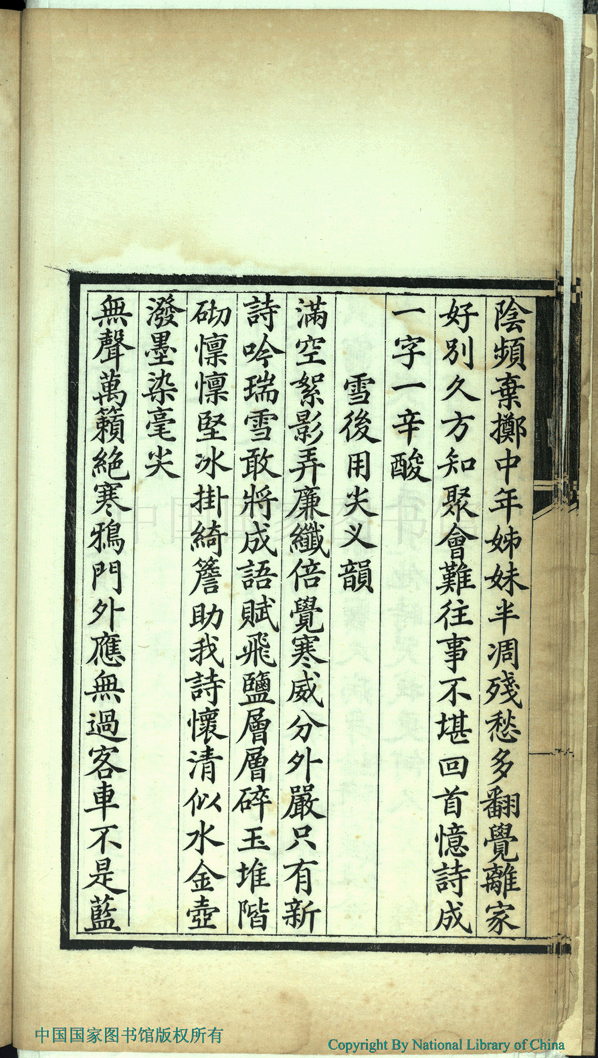 陰頻棄擲中年姊妹半凋殘愁多翻覺離家
好別久方知聚會難往事不堪回首憶詩成
一字一辛酸
雪後用尖义韻
滿空絮影弄廉纖倍覺寒威分外嚴只有新
詩吟瑞雪敢將成語賦飛鹽層層碎玉堆階
砌懍懍堅冰掛綺簷助我詩懷清似水金壺
潑墨染毫尖
無聲萬籟絕寒鴉門外應無過客車不是藍
中国国家图书馆版权所有
Copyright By National Library of China